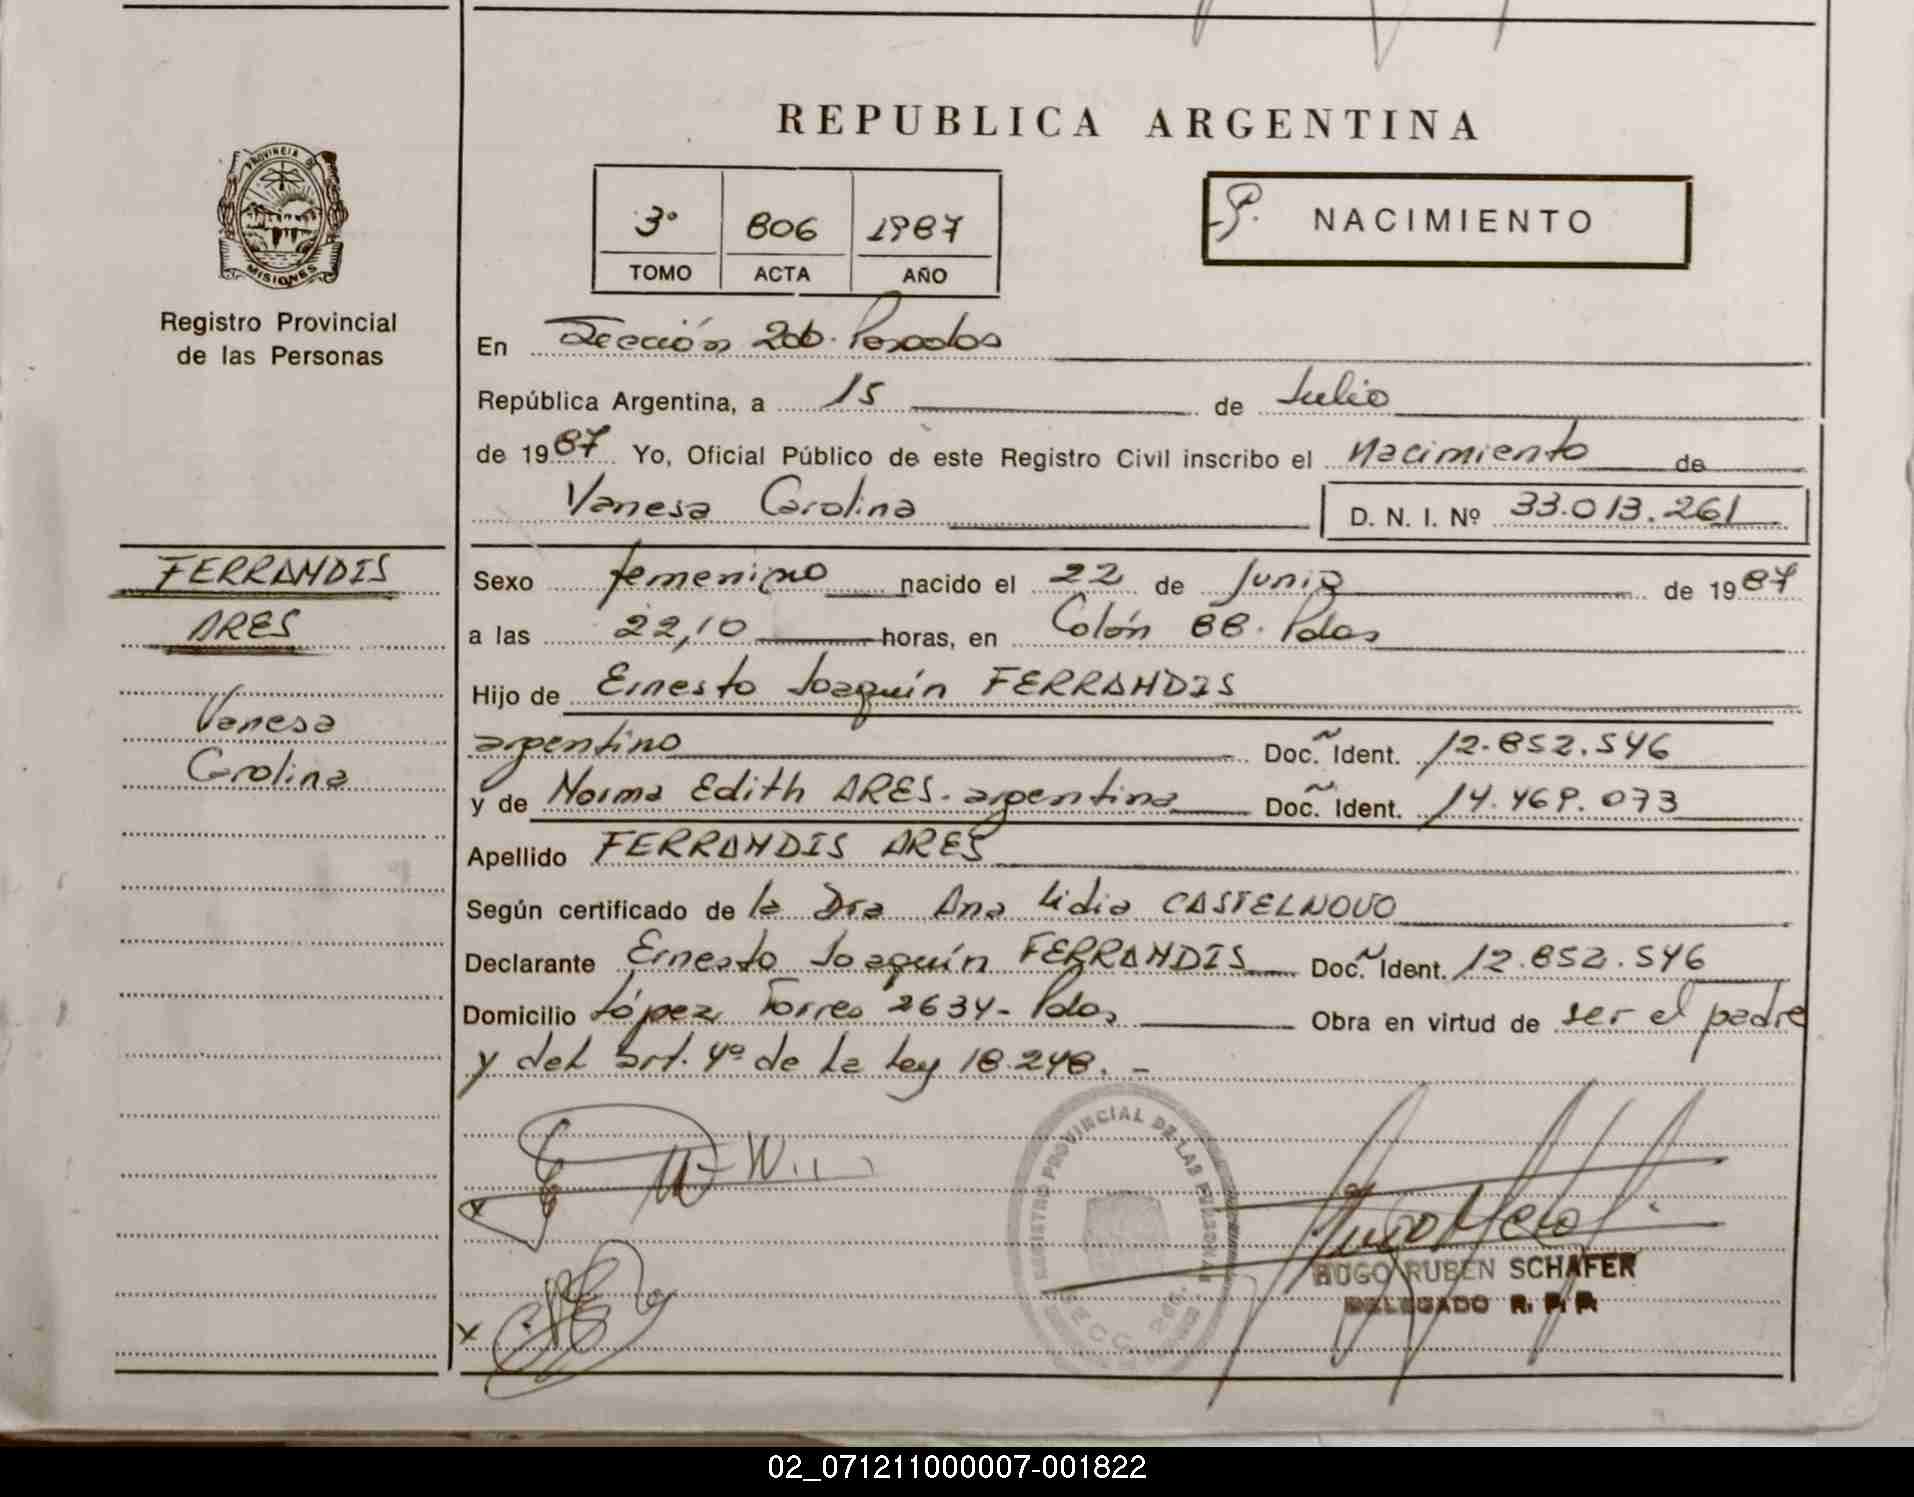 REPUBLICA ARGENTINA
PROVINCIA DE
MISIONES
Registro Provincial
de las Personas
3º 806 1987
TOMO ACTA AÑO
NACIMIENTO
En Sección 2da. Posadas
República Argentina, a 15 de Julio
de 1987 Yo, Oficial Público de este Registro Civil inscribo el Nacimiento de
Vanesa Carolina D. N. I. Nº 33.013.261
FERRANDIS
ARES
Vanesa
Carolina
Sexo femenino nacido el 22 de Junio de 1987
a las 22,10 horas, en Colón 88. Pdas
Hijo de Ernesto Joaquín FERRANDIS
argentino Doc. Ident. 12.852.546
y de Norma Edith ARES. argentina Doc. Ident. 14.469.073
Apellido FERRANDIS ARES
Según certificado de la Dra Ana Lidia CASTELNOVO
Declarante Ernesto Joaquín FERRANDIS Doc. Ident. 12.852.546
Domicilio López Torres 2634- Pdas Obra en virtud de ser el padre
y del art. 4º de la Ley 18.248. -
REGISTRO PROVINCIAL DE LAS PERSONAS
SECC. 2da.
HUGO RUBEN SCHAFER
DELEGADO R. P. P.
02_071211000007-001822